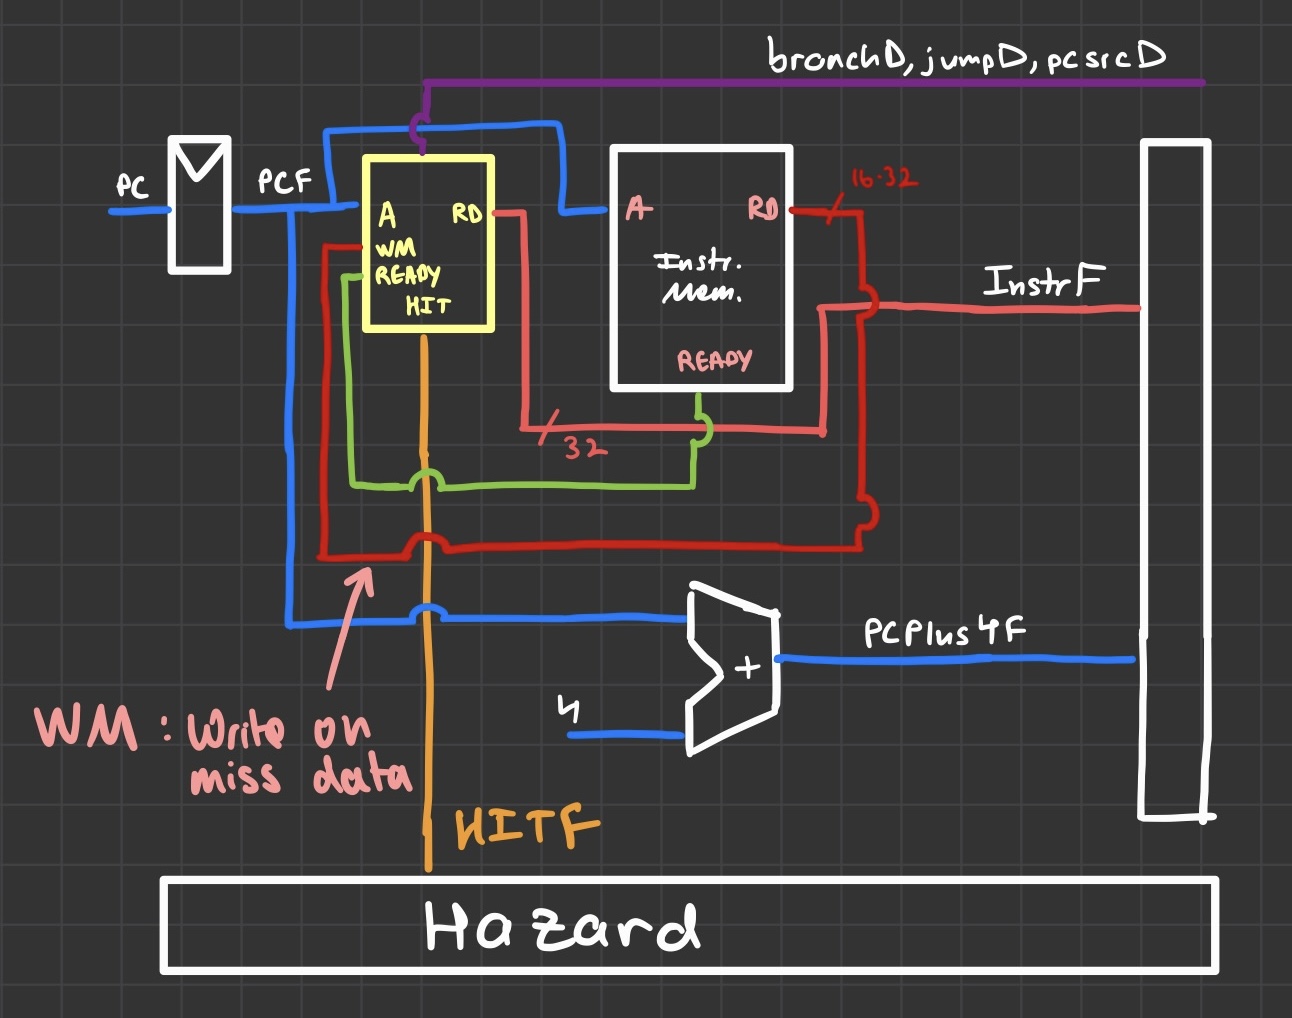 branchD, jumpD, pcsrcD
PC
PCF
A
RD
WM
READY
HIT
A
RD
Instr.
Mem.
READY
16·32
InstrF
32
PCPlus4F
+
4
WM : Write on
miss data
HITF
Hazard